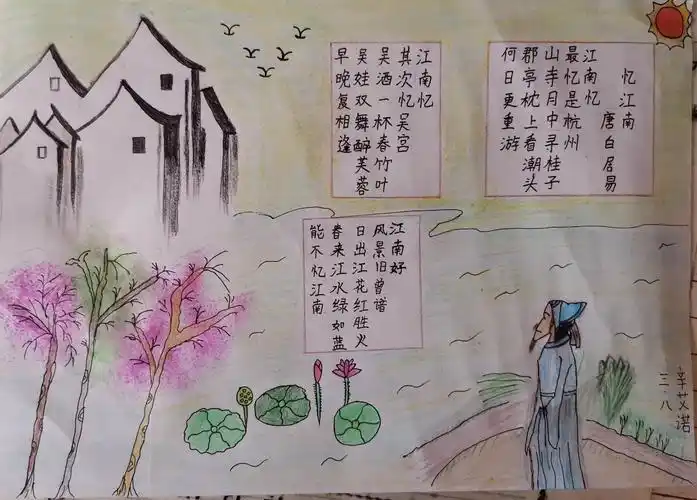 忆江南
唐白居易
江南忆
最忆是杭州
山寺月中寻桂子
郡亭枕上看潮头
何日更重游
江南忆
其次忆吴宫
吴酒一杯春竹叶
吴娃双舞醉芙蓉
早晚复相逢
江南好
风景旧曾谙
日出江花红胜火
春来江水绿如蓝
能不忆江南
辛艾诺
三.八